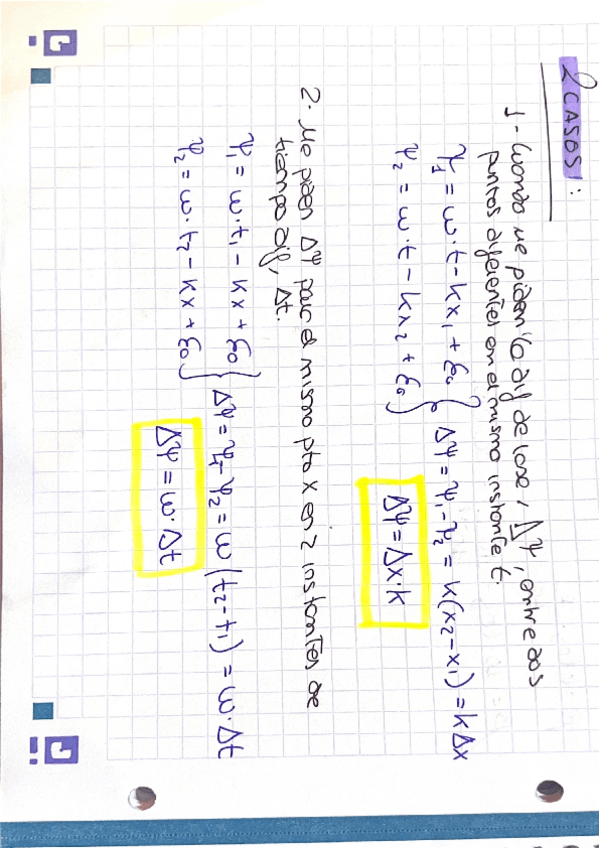 2 CASOS!:
1- Cuando me piden la dif de fase, Δψ, entre dos
puntos diferentes en el mismo instante t.
ψ₁ = w·t - kx₁ + ξ₀
ψ₂ = w·t - kx₂ + ξ₀ } Δψ = ψ₁ - ψ₂ = k(x₂-x₁) = kΔx
Δψ = Δx·k
2. Me piden Δψ para el mismo pto x en 2 instantes de
tiempo dif, Δt.
ψ₁ = w·t₁ - kx + ξ₀
ψ₂ = w·t₂ - kx + ξ₀ } Δψ = ψ₁ - ψ₂ = w(t₂-t₁) = w·Δt
Δψ = w·Δt